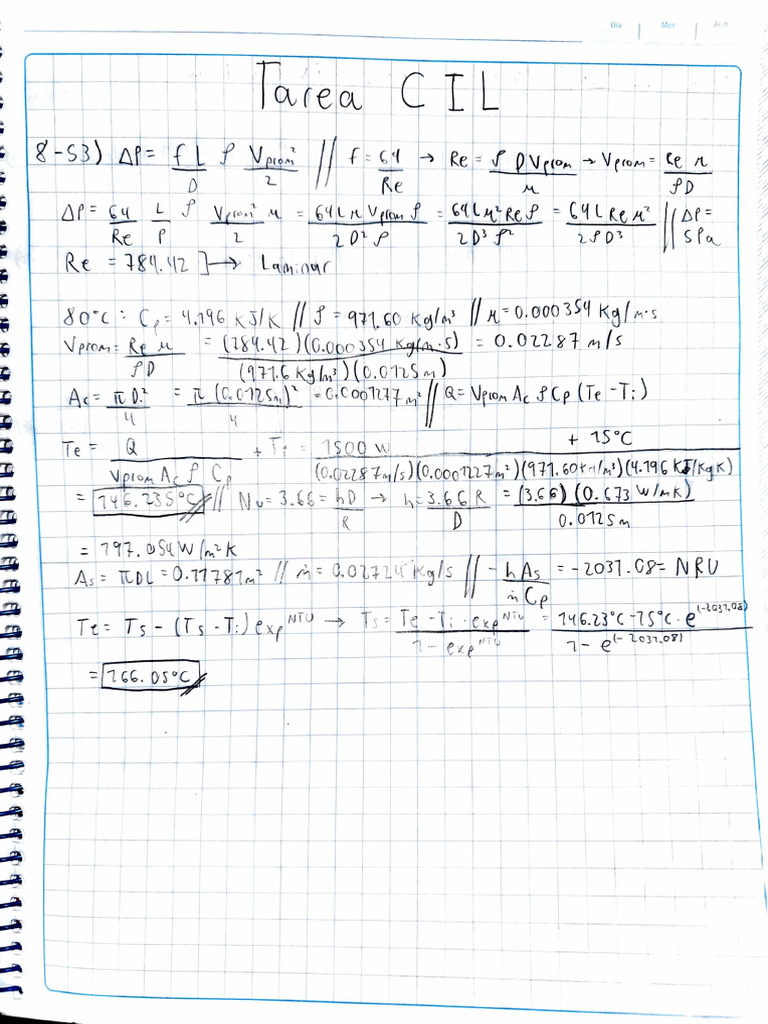 Día Mes Año
Tarea CIL
8-53) ΔP = f L/D ρ Vprom²/2 // f = 64/Re → Re = ρ D Vprom/μ → Vprom = Re μ/ρD
ΔP = 64/Re L/P ρ Vprom² μ/2 = 64 L μ Vprom ρ/2 D² ρ = 64 L μ² Re ρ/2D³ ρ² = 64 L Re μ²/2 ρ D³ // ΔP = 5Pa
Re = 784.42 ] → Laminar
80°C : Cp = 4.196 KJ/K // ρ = 971.60 Kg/m³ // μ = 0.000354 Kg/m·s
Vprom = Re μ/ρD = (784.42)(0.000354 Kg/m·s)/(971.6 Kg/m³)(0.0125m) = 0.02287 m/s
Ac = π D²/4 = π (0.0125m)²/4 = 0.0001277 m² // Q = Vprom Ac ρ Cp (Te - Ti)
Te = Q/Vprom Ac ρ Cp + Ti = 1500 W/(0.02287m/s)(0.0001227m²)(971.60 Kg/m³)(4.196 KJ/KgK) + 15°C
= 146.235°C // Nu = 3.66 = hD/K → h = 3.66 K/D = (3.66)(0.673 W/mK)/0.0125m
= 197.054 W/m²K
As = πDL = 0.11781m² // ṁ = 0.02724 Kg/s // - hAs/ṁ Cp = -2031.08 = NRU
Te = Ts - (Ts - Ti) exp^NTU → Ts = Te - Ti · exp^NTU/1 - exp^NTU = 146.23°C - 15°C · e^(-2031.08)/1 - e^(-2031.08)
= 166.05°C